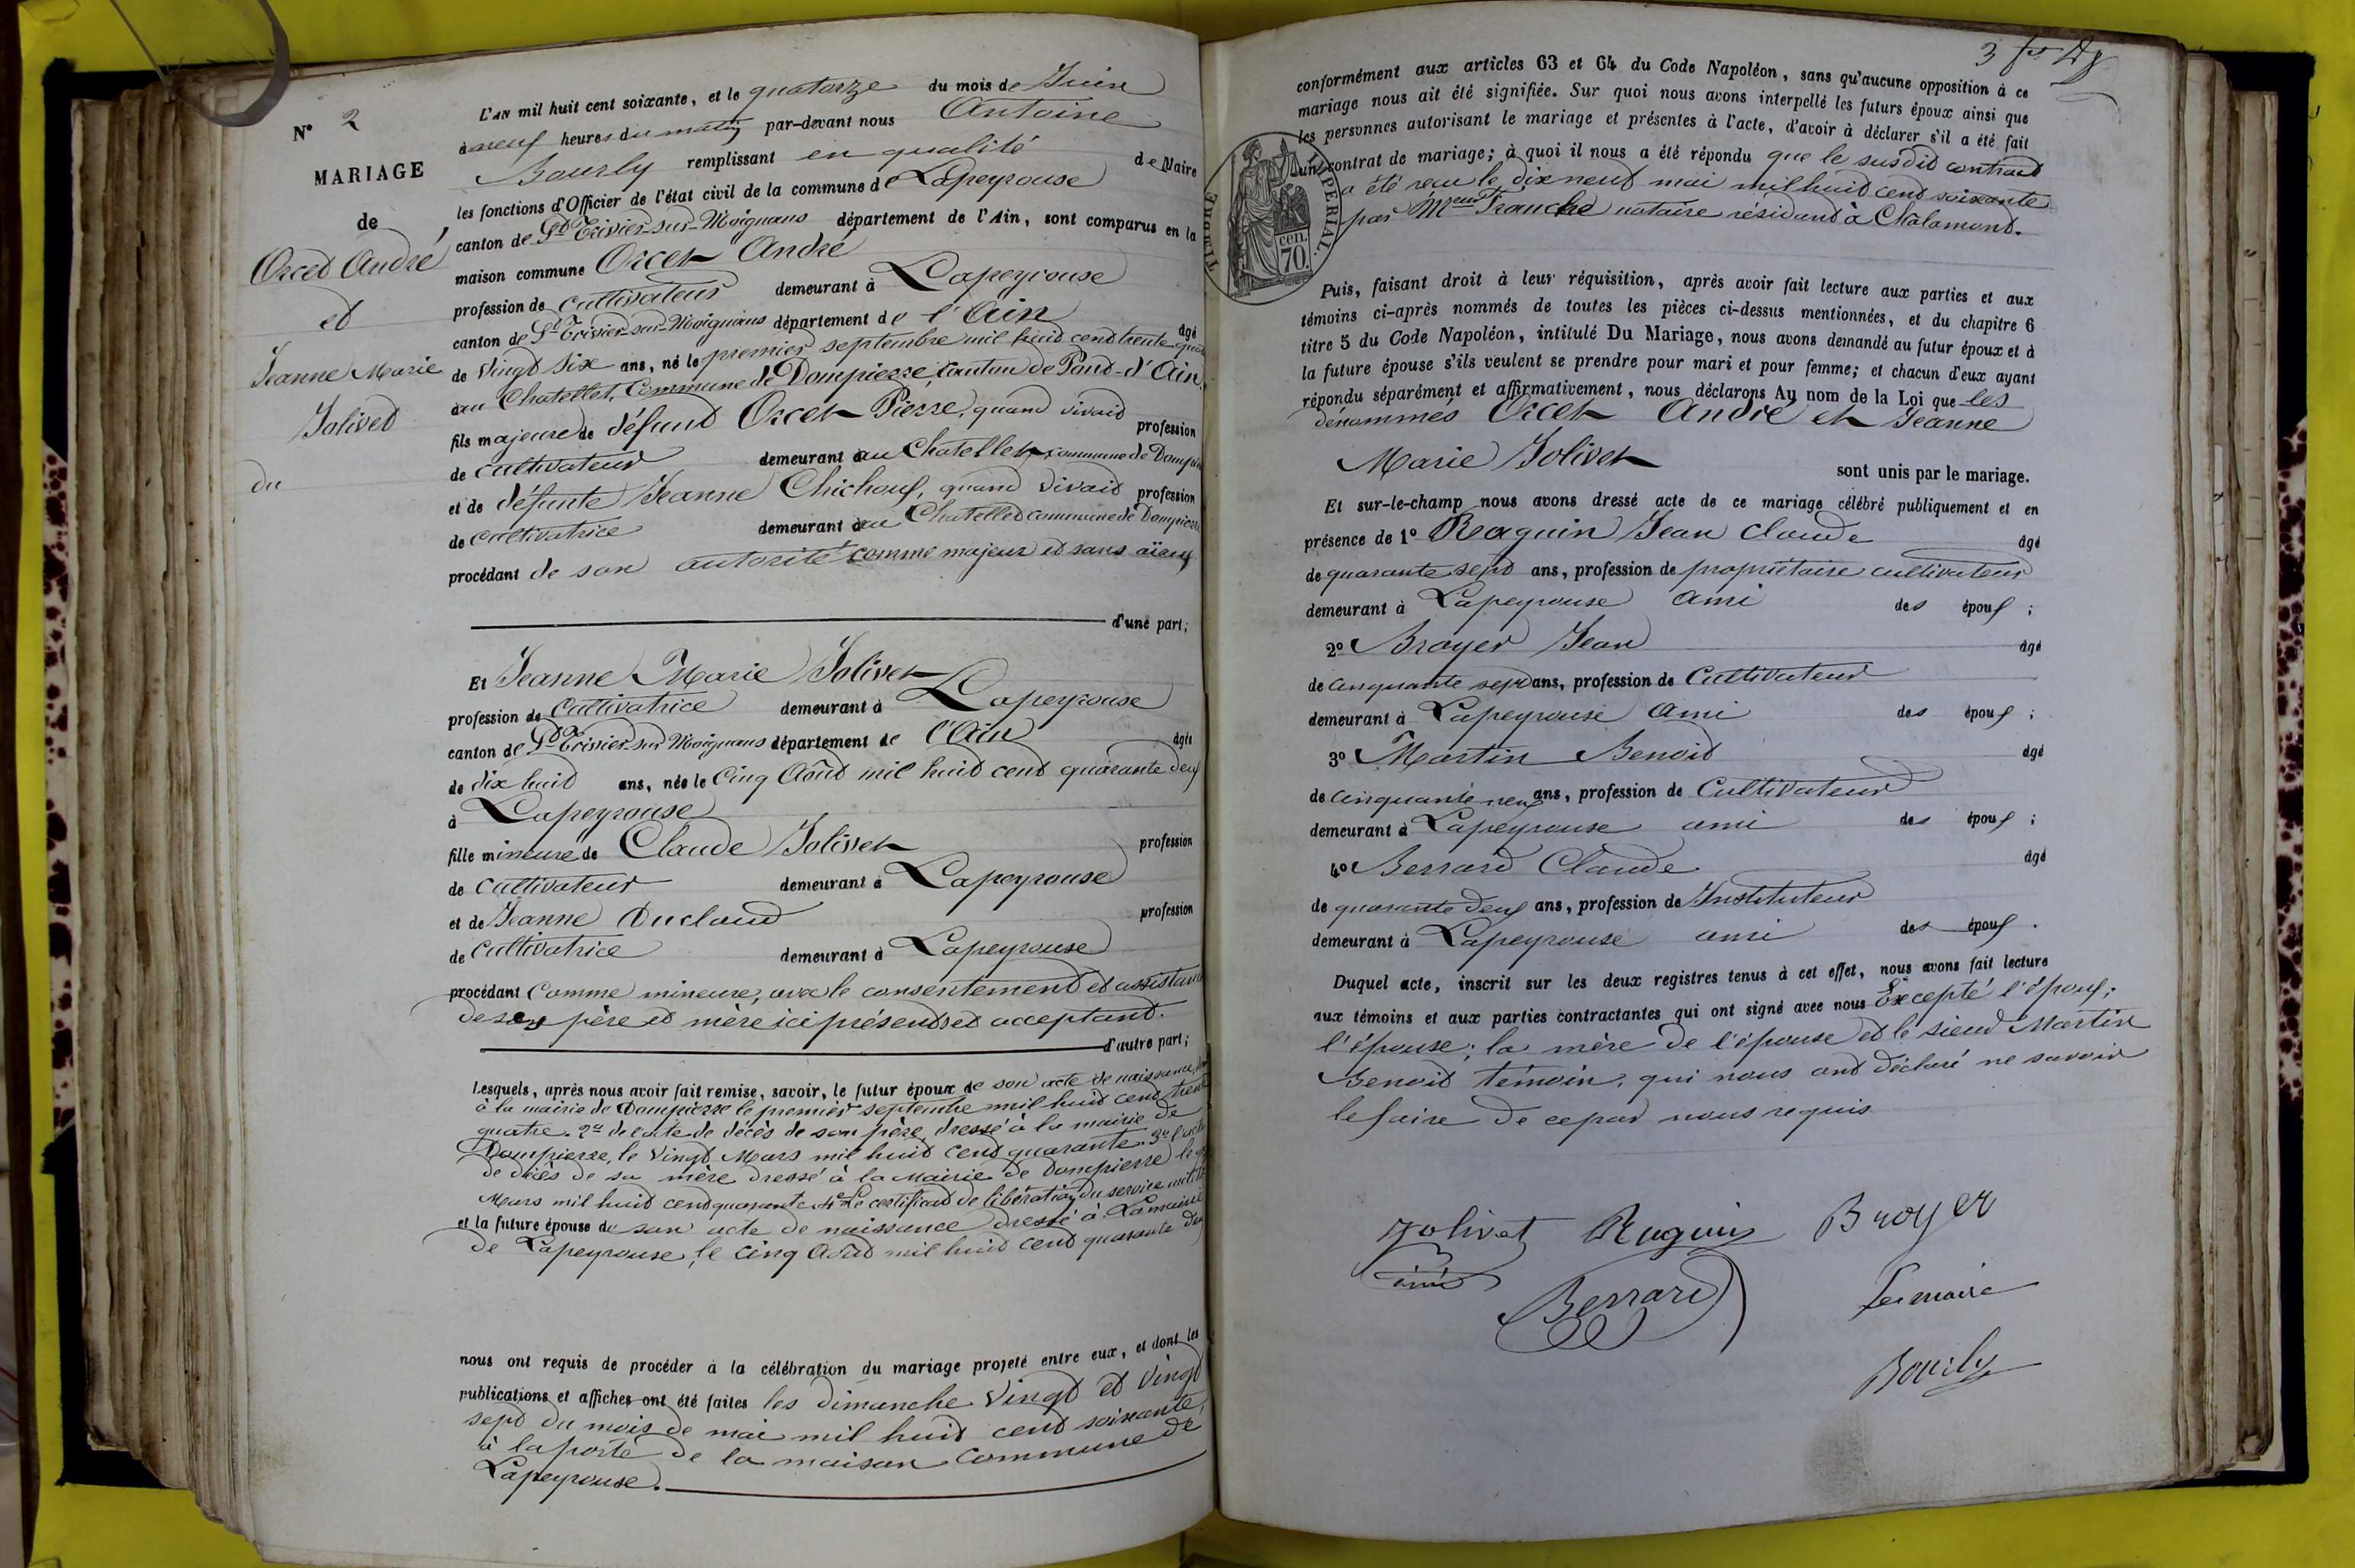 N° 2
MARIAGE
de
Orcet André
et
Jeanne Marie
Jolivet
du
L'AN mil huit cent soixante, et le quatorze du mois de Juin
à neuf heures du matin par-devant nous Antoine
Bouily remplissant en qualité de Maire
les fonctions d'Officier de l'état civil de la commune de Lapeyrouse
canton de St Trivier-sur-Moignans département de l'Ain, sont comparus en la
maison commune Orcet André
profession de cultivateur demeurant à Lapeyrouse
canton de St Trivier-sur-Moignans département de l'Ain âgé
de vingt six ans, né le premier septembre mil huit cent trente quatre
au Chatellet, Commune de Dompierre, canton de Pont-d'Ain,
fils majeure de défunt Orcet Pierre, quand vivait profession
de cultivateur demeurant au Chatellet, commune de Dompierre
et de défunte Jeanne Chichoux, quand vivait profession
de cultivatrice demeurant au Chatellet commune de Dompierre
procédant de son autorité comme majeur et sans aïeux
d'une part;
Et Jeanne Marie Jolivet
profession de Cultivatrice demeurant à Lapeyrouse
canton de St Trivier-sur-Moignans département de l'Ain âgée
de dix huit ans, née le cinq Août mil huit cent quarante deux
à Lapeyrouse
fille mineure de Claude Jolivet profession
de cultivateur demeurant à Lapeyrouse
et de Jeanne Duclaud profession
de cultivatrice demeurant à Lapeyrouse
procédant comme mineure, avec le consentement et assistance
de ses père et mère ici présents et acceptant.
d'autre part;
Lesquels, après nous avoir fait remise, savoir, le futur époux de son acte de naissance,
à la mairie de Dompierre le premier septembre mil huit cent trente
quatre. 2º de l'acte de décès de son père, dressé à la mairie de
Dompierre, le vingt Mars mil huit cent quarante. 3º l'acte
de décès de sa mère dressé à la Mairie de Dompierre le
Mars mil huit cent quarante. 4º Le certificat de libération du service militaire
et la future épouse de son acte de naissance dressé à La mairie
de Lapeyrouse, le cinq Août mil huit cent quarante deux
nous ont requis de procéder à la célébration du mariage projeté entre eux, et dont les
publications et affiches ont été faites les dimanche vingt et vingt
sept du mois de mai mil huit cent soixante,
à la porte de la maison commune de
Lapeyrouse.
3
conformément aux articles 63 et 64 du Code Napoléon, sans qu'aucune opposition à ce
mariage nous ait été signifiée. Sur quoi nous avons interpellé les futurs époux ainsi que
les personnes autorisant le mariage et présentes à l'acte, d'avoir à déclarer s'il a été fait
un contrat de mariage; à quoi il nous a été répondu que le susdit contrat
a été reçu le dix neuf mai mil huit cent soixante
par Me Tranche notaire résidant à Chalamont.
TIMBRE IMPERIAL.
70 cen.
Puis, faisant droit à leur réquisition, après avoir fait lecture aux parties et aux
témoins ci-après nommés de toutes les pièces ci-dessus mentionnées, et du chapitre 6
titre 5 du Code Napoléon, intitulé Du Mariage, nous avons demandé au futur époux et à
la future épouse s'ils veulent se prendre pour mari et pour femme; et chacun d'eux ayant
répondu séparément et affirmativement, nous déclarons Au nom de la Loi que les
dénommés Orcet André et Jeanne
Marie Jolivet sont unis par le mariage.
Et sur-le-champ nous avons dressé acte de ce mariage célébré publiquement et en
présence de 1º Raquin Jean Claude âgé
de quarante sept ans, profession de propriétaire cultivateur
demeurant à Lapeyrouse ami des époux;
2º Broyer Jean âgé
de cinquante sept ans, profession de Cultivateur
demeurant à Lapeyrouse ami des époux;
3º Martin Benoit âgé
de cinquante neuf ans, profession de Cultivateur
demeurant à Lapeyrouse ami des époux;
4º Berrard Claude âgé
de quarante deux ans, profession de Instituteur
demeurant à Lapeyrouse ami des époux.
Duquel acte, inscrit sur les deux registres tenus à cet effet, nous avons fait lecture
aux témoins et aux parties contractantes qui ont signé avec nous Excepté l'époux;
l'épouse; la mère de l'épouse et le sieur Martin
Benoit témoin, qui nous ont déclaré ne savoir
le faire de ce par nous requis
Jolivet Raquin Broyer
Berrard Le maire
Bouily